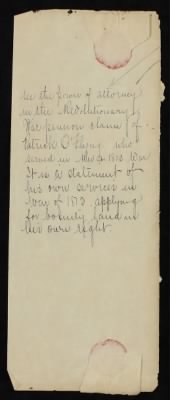 see the power of attorney
in the Revolutionary
War pension claim of
Patrick O'Flyng who
served in the 1813 War
It is a statement of
his own services in
War of 1813, applying
for bounty land in
his own right.